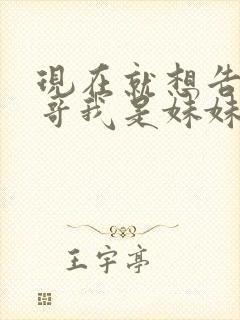 現在就想告
哥我是妹妹
王宇亭